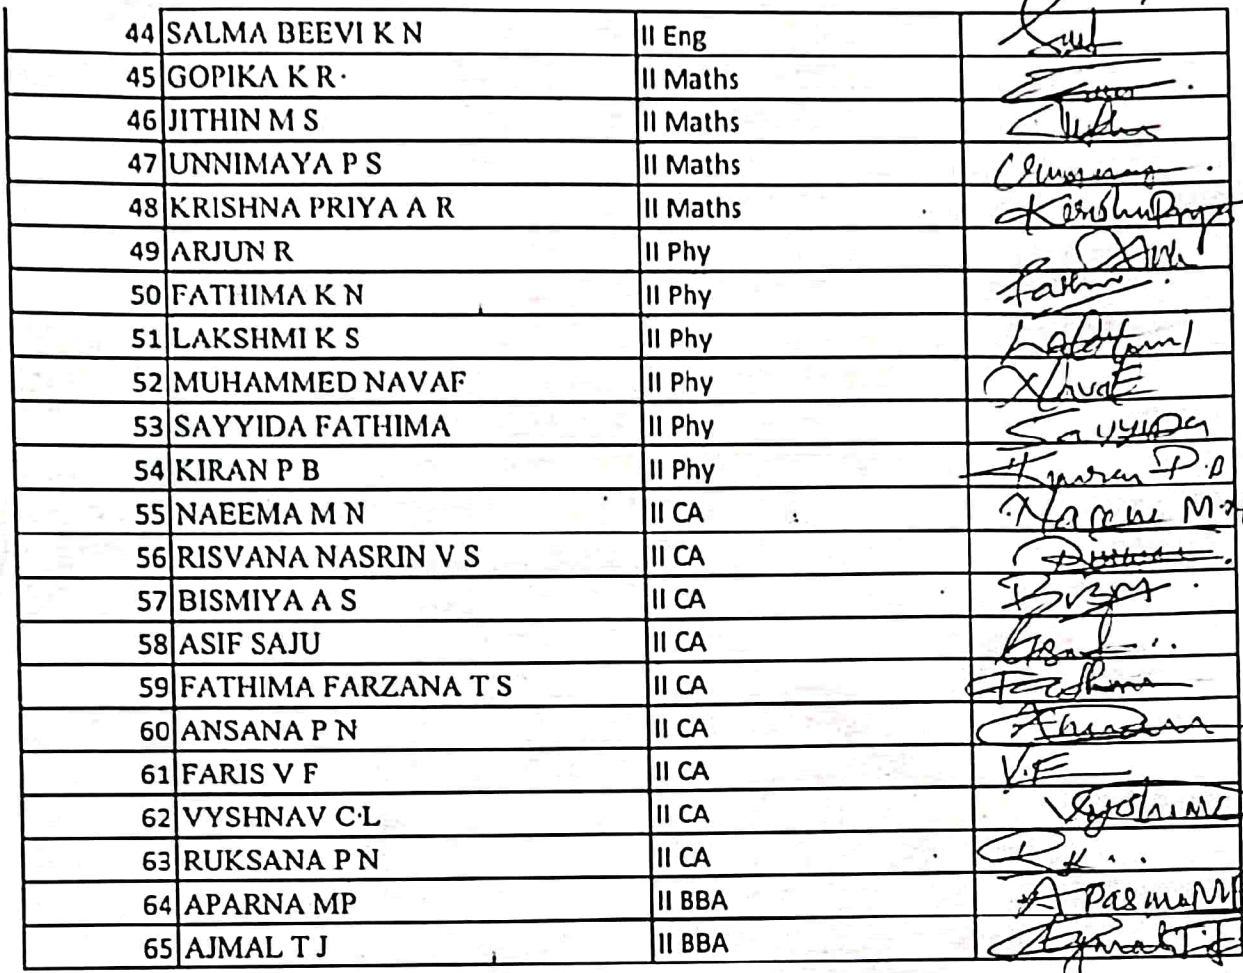 44 SALMA BEEVI K N II Eng
45 GOPIKA K R II Maths
46 JITHIN M S II Maths
47 UNNIMAYA P S II Maths
48 KRISHNA PRIYA A R II Maths
49 ARJUN R II Phy
50 FATHIMA K N II Phy Fathi
51 LAKSHMI K S II Phy
52 MUHAMMED NAVAF II Phy
53 SAYYIDA FATHIMA II Phy Sayyida
54 KIRAN P B II Phy
55 NAEEMA M N II CA
56 RISVANA NASRIN V S II CA
57 BISMIYA A S II CA
58 ASIF SAJU II CA
59 FATHIMA FARZANA T S II CA
60 ANSANA P N II CA
61 FARIS V F II CA V.F
62 VYSHNAV C L II CA
63 RUKSANA P N II CA
64 APARNA MP II BBA
65 AJMAL T J II BBA